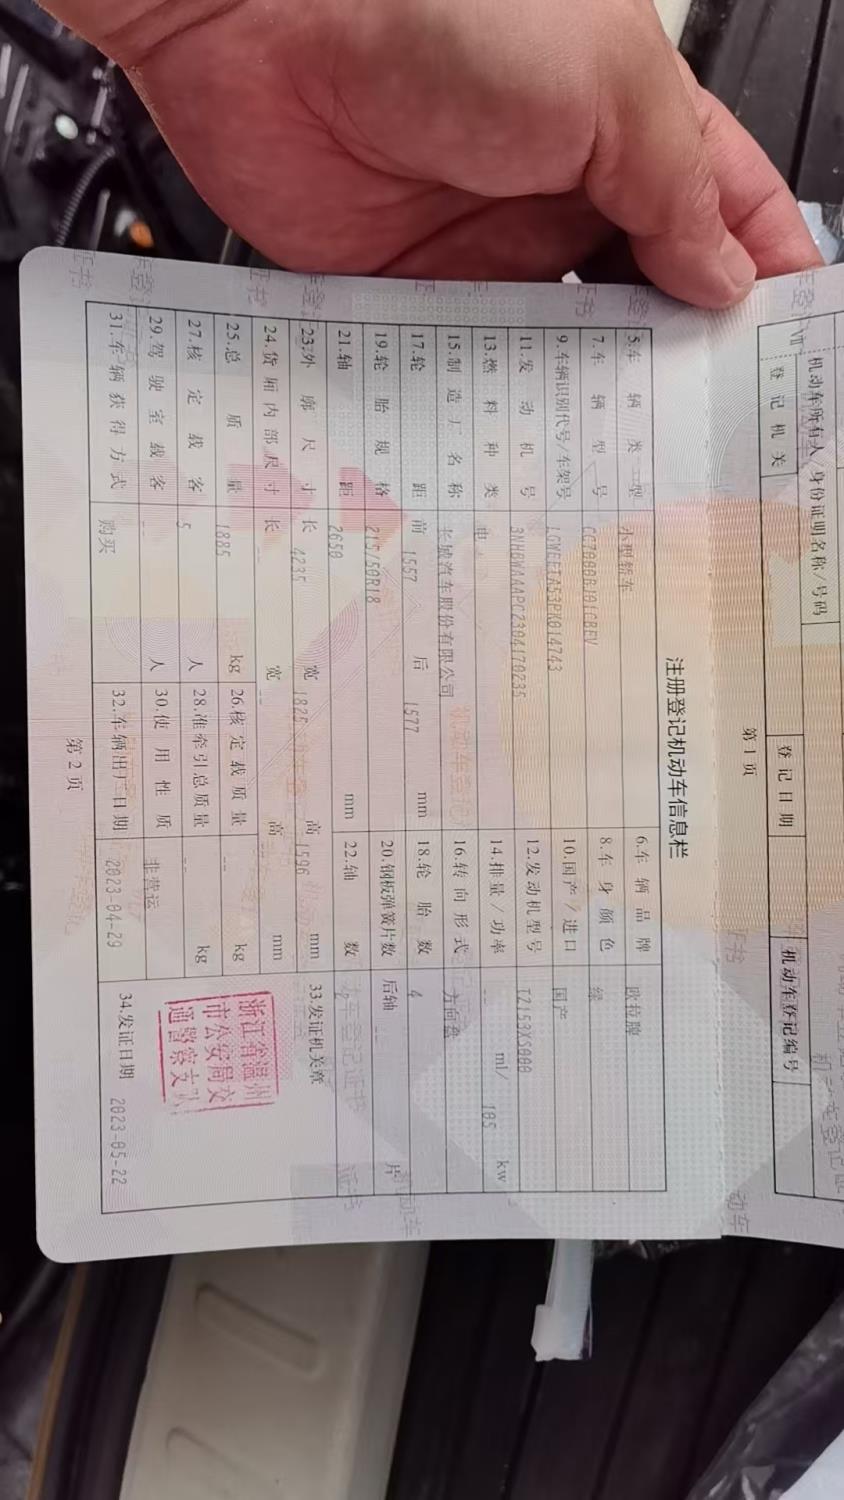 机动车所有人/身份证明名称/号码
登记机关 登记日期 机动车登记编号
第1页
注册登记机动车信息栏
5.车辆类型 小型轿车 6.车辆品牌 欧拉牌
7.车辆型号 CC7000BJ01CBEV 8.车身颜色 绿
9.车辆识别代号/车架号 LGWEETA53PK014743 10.国产/进口 国产
11.发动机号 3NHBWAAAPC2304170235 12.发动机型号 TZ153XS000
13.燃料种类 电 14.排量/功率 -- ml/ 105 kw
15.制造厂名称 长城汽车股份有限公司 16.转向形式 方向盘
17.轮距 前 1557 后 1577 mm 18.轮胎数 4
19.轮胎规格 215/50R18 20.钢板弹簧片数 后轴 -- 片
21.轴距 2650 mm 22.轴数 2
23.外廓尺寸 长 4235 宽 1825 高 1596 mm 33.发证机关章
24.货厢内部尺寸 长 -- 宽 -- 高 mm
25.总质量 1885 kg 26.核定载质量 -- kg
27.核定载客 5 人 28.准牵引总质量 -- kg
29.驾驶室载客 -- 人 30.使用性质 非营运
31.车辆获得方式 购买 32.车辆出厂日期 2023-04-29 34.发证日期 2023-05-22
浙江省温州
市公安局交
通警察支队
第2页